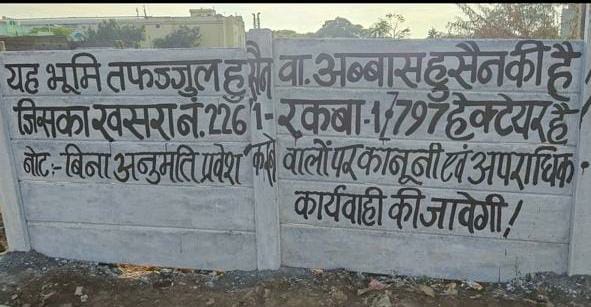 यह भूमि तफज्जुल हुसैन वा. अब्बास हुसैन की है
जिसका खसरा नं. 226/1- रकबा -1.797 हेक्टेयर है
नोट:- बिना अनुमति प्रवेश करने वालों पर कानूनी एवं अपराधिक
कार्यवाही की जावेगी!